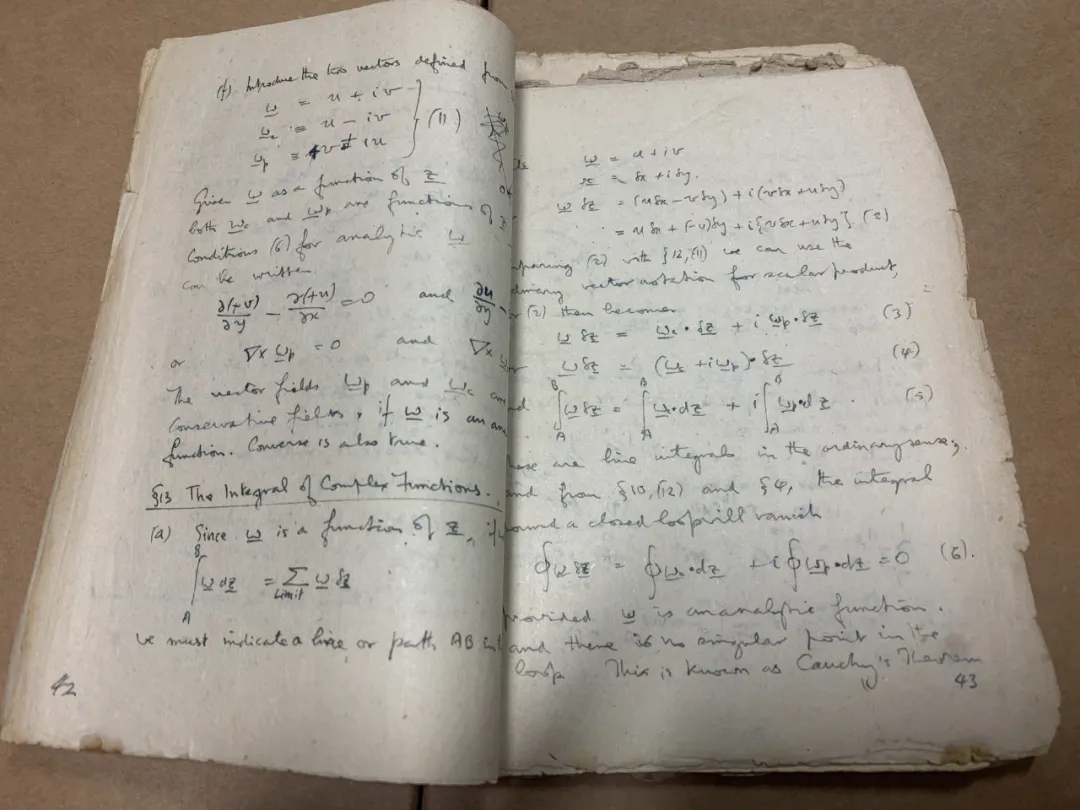 (f) Introduce the two vectors defined from
w = u + iv
w_c = u - iv
w_p = v + iu
} (11)
Given w as a function of z
both w_c and w_p are functions of z
Conditions (6) for analytic w
can be written
∂(+v)/∂y - ∂(+u)/∂x = 0 and ∂u/∂y -
or ∇× w_p = 0 and ∇× w
The vector fields w_p and w_c
Conservative fields, if w is an an
function. Converse is also true.
§13 The Integral of Complex Functions.
(a) Since w is a function of z, if
∫_A^B w dz = Σ_Limit w δz
we must indicate a line or path AB in
42
w = u + iv
= δx + iδy.
w δz = (uδx - vδy) + i(vδx + uδy)
= uδx + (-v)δy + i{vδx + uδy} (2)
paring (2) with §12,(11) we can use the
dinary vector notation for scalar product,
(2) then becomes
w δz = w_c • δz + i w_p • δz (3)
w δz = (w_c + i w_p) • δz (4)
∫_A^B w δz = ∫_A^B w_c • dz + i ∫_A^B w_p • dz (5)
hese are line integrals in the ordinary sense;
and from §10,(12) and §4, the integral
round a closed loop will vanish
∮ w δz = ∮ w_c • dz + i ∮ w_p • dz = 0 (6).
provided w is an analytic function.
and there is no singular point in the
loop This is known as Cauchy's Theorem
43